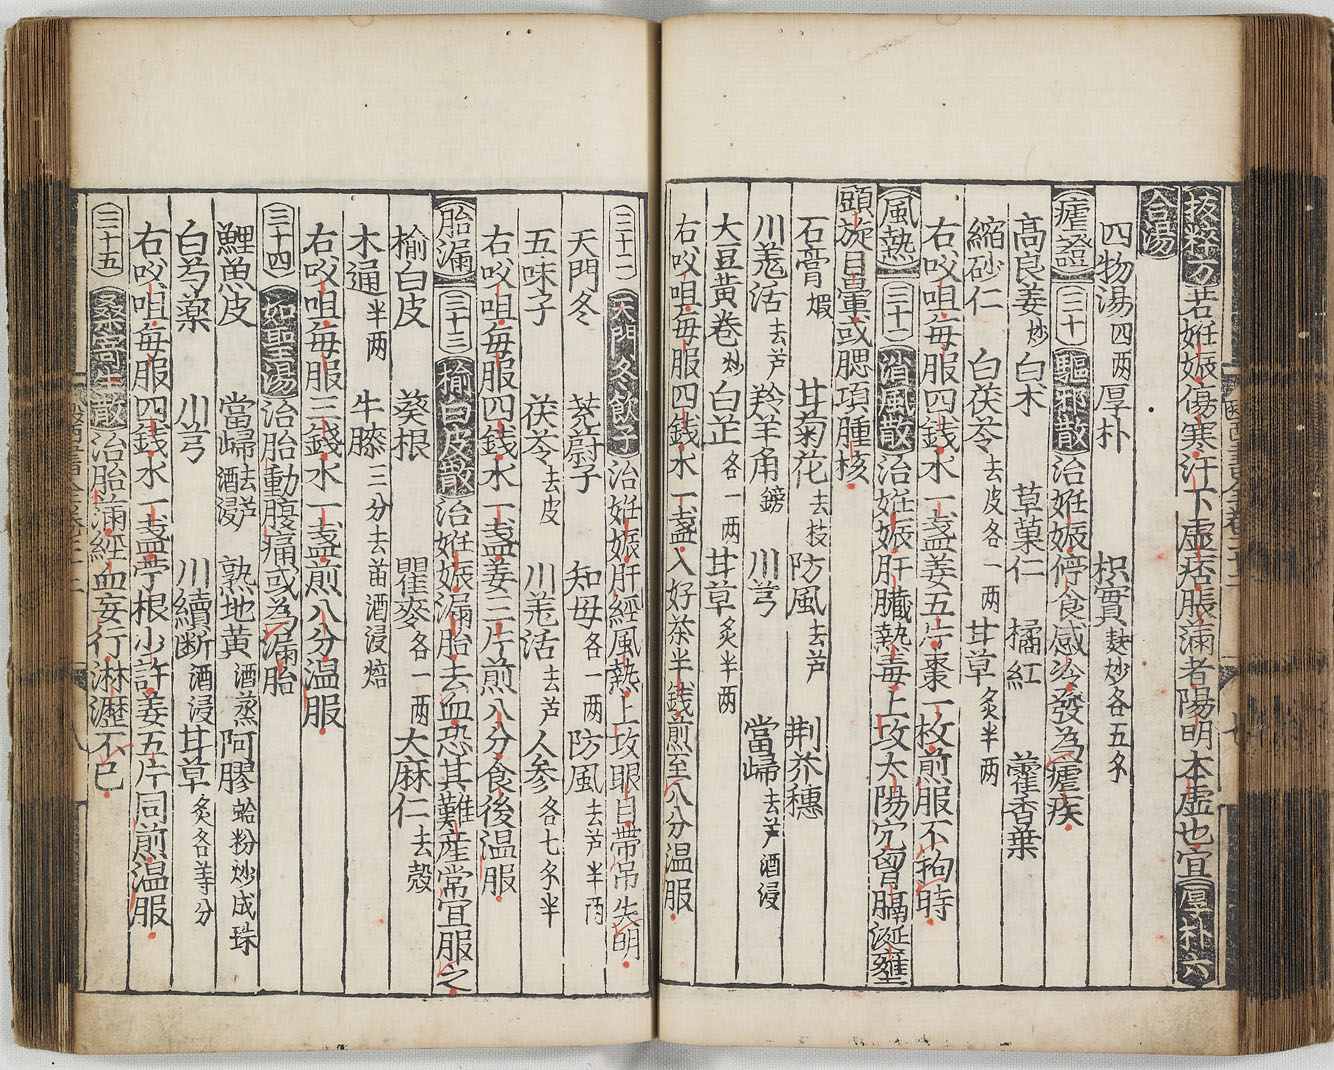 拔粹方若妊娠傷寒汗下虛痞脹滿者陽明本虛也宜厚朴六
合湯
四物湯四两厚朴 枳實麸炒各五錢
瘧證 三十 驅邪散治妊娠停食感冷發為瘧疾
髙良姜炒白术 草菓仁 橘紅 藿香葉
縮砂仁 白茯苓去皮各一两甘草炙半两
右㕮咀每服四錢水一盞姜五片棗一枚煎服不拘時
風熱 三十一 消風散治妊娠肝臟熱毒上攻太陽穴胷膈涎壅
頭旋目暈或腮項腫核
石膏煆 甘菊花去枝防風去芦 荆芥穗
川羗活去芦羚羊角鎊 川芎 當歸去芦酒浸
大豆黃卷炒白芷各一两甘草炙半两
右㕮咀每服四錢水一盞入好茶半錢煎至八分温服
三十二 天門冬飲子治妊娠肝經風熱上攻眼目帶吊失明
天門冬 茺蔚子 知母各一两防風去芦半两
五味子 茯苓去皮 川羗活去芦人参各七錢半
右㕮咀每服四錢水一盞姜三片煎八分食後温服
胎漏 三十三 榆白皮散治妊娠漏胎去血恐其難産常宜服之
榆白皮 葵根 瞿麥各一两大麻仁去殼
木通半两 牛膝三分去苗酒浸焙
右㕮咀每服三錢水一盞煎八分温服
三十四 如聖湯治胎動腹痛或為漏胎
鯉魚皮 當歸去芦酒浸 熟地黃酒蒸阿膠蛤粉炒成珠
白芍藥 川芎 川續断酒浸甘草炙各等分
右㕮咀每服四錢水一盞苧根少許姜五片同煎温服
三十五 桑寄生散治胎漏經血妄行淋瀝不已